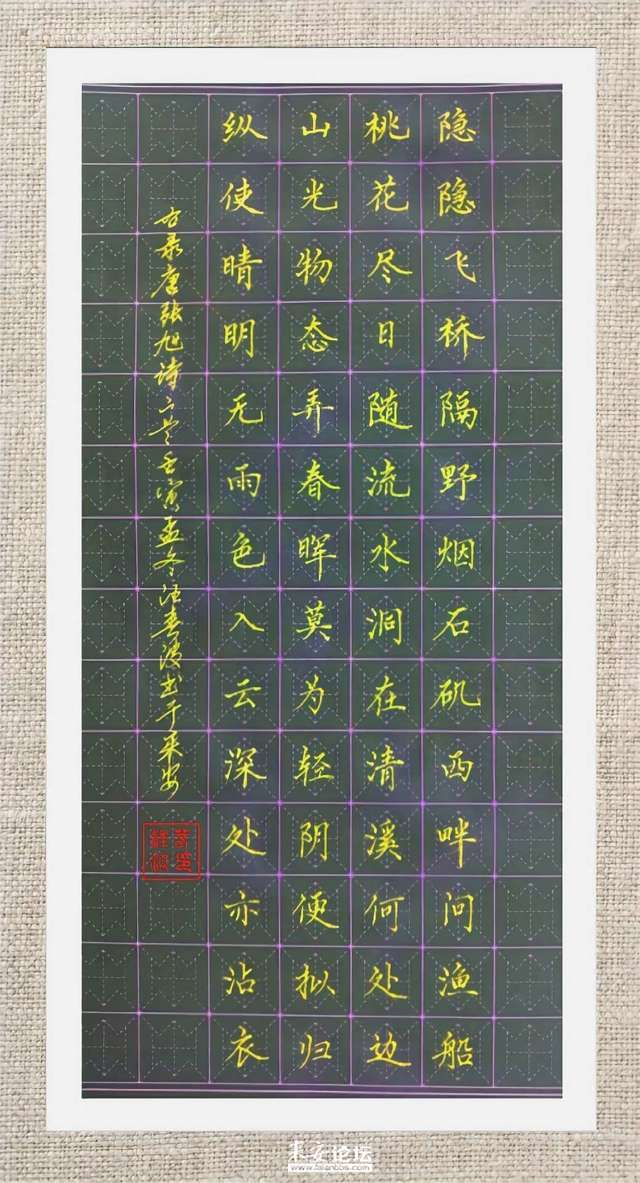 隐隐飞桥隔野烟石矶西畔问渔船
桃花尽日随流水洞在清溪何处边
山光物态弄春晖莫为轻阴便拟归
纵使晴明无雨色入云深处亦沾衣
右录唐张旭诗二首壬寅孟冬汪春波书于来安
来安论坛
www.laianbbs.com